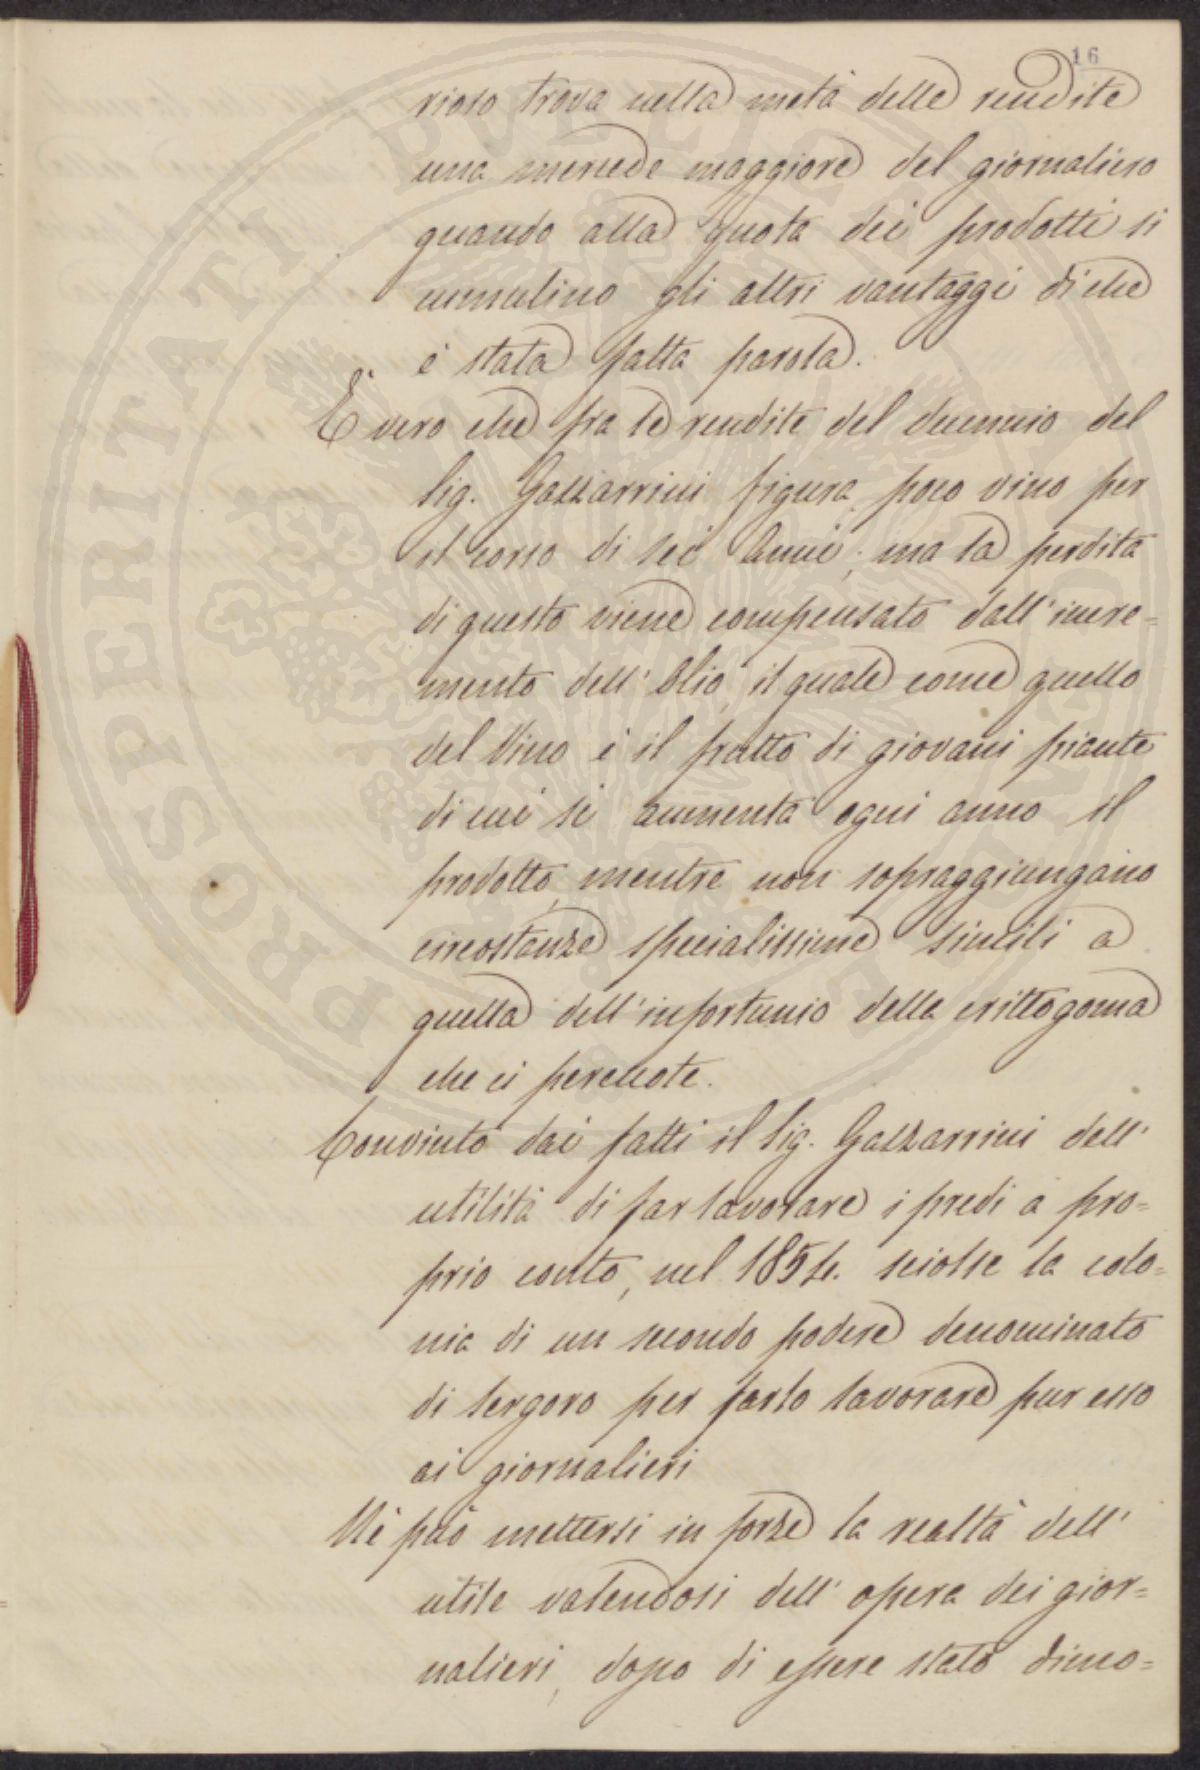 16
rioso trova nella metà delle rendite
una mercede maggiore del giornaliero
quando alla quota dei prodotti si
cumulino gli altri vantaggi di che
è stata fatta parola.
È vero che fra le rendite del decennio del
Sig. Gazzarrini figura poco vino per
il corso di sei Anni, ma la perdita
di questo viene compensato dall'incre=
mento dell'Olio, il quale come quello
del Vino è il frutto di giovani piante
di cui si aumenta ogni anno il
prodotto, mentre non sopraggiungano
circostanze specialissime simili a
quella dell'infortunio della crittogama
che ci percuote.
Convinto dai fatti il Sig. Gazzarrini dell'
utilità di far lavorare i predi a pro=
prio conto, nel 1854. sciolse la colo=
nia di un secondo podere denominato
di Sergoro per farlo lavorare pur esso
ai giornalieri
Nè può mettersi in forze la realtà dell'
utile valendosi dell'opera dei gior=
nalieri, dopo di essere stato dimo=
PROSPERITATI PVBLICAE